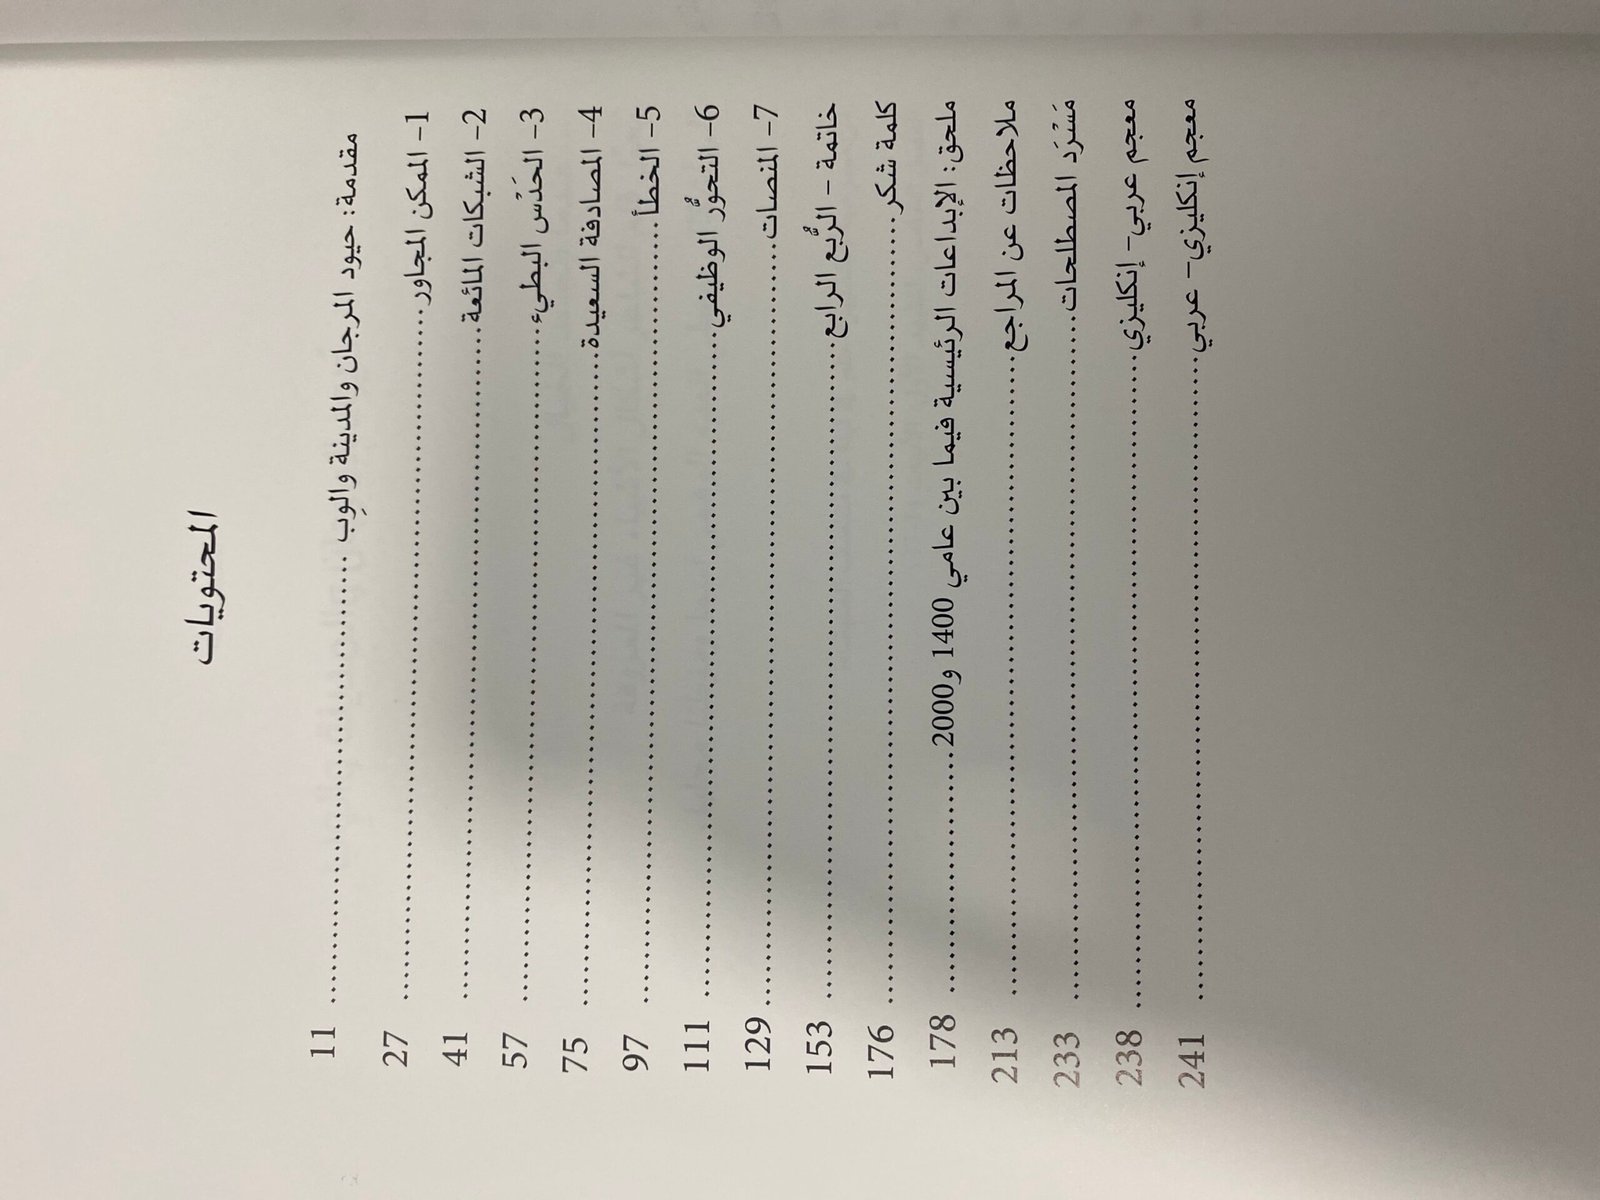 المحتويات
مقدمة: حيود المرجان والمدينة والوِب ........ 11
1- الممكن المجاور ........ 27
2- الشبكات المائعة ........ 41
3- الحَدْس البطيء ........ 57
4- المصادفة السعيدة ........ 75
5- الخطأ ........ 97
6- التحوُّر الوظيفي ........ 111
7- المنصات ........ 129
خاتمة - الرُّبع الرابع ........ 153
كلمة شكر ........ 176
ملحق: الإبداعات الرئيسية فيما بين عامي 1400 و2000 ........ 178
ملاحظات عن المراجع ........ 213
مَسْرَد المصطلحات ........ 233
معجم عربي- إنكليزي ........ 238
معجم إنكليزي- عربي ........ 241